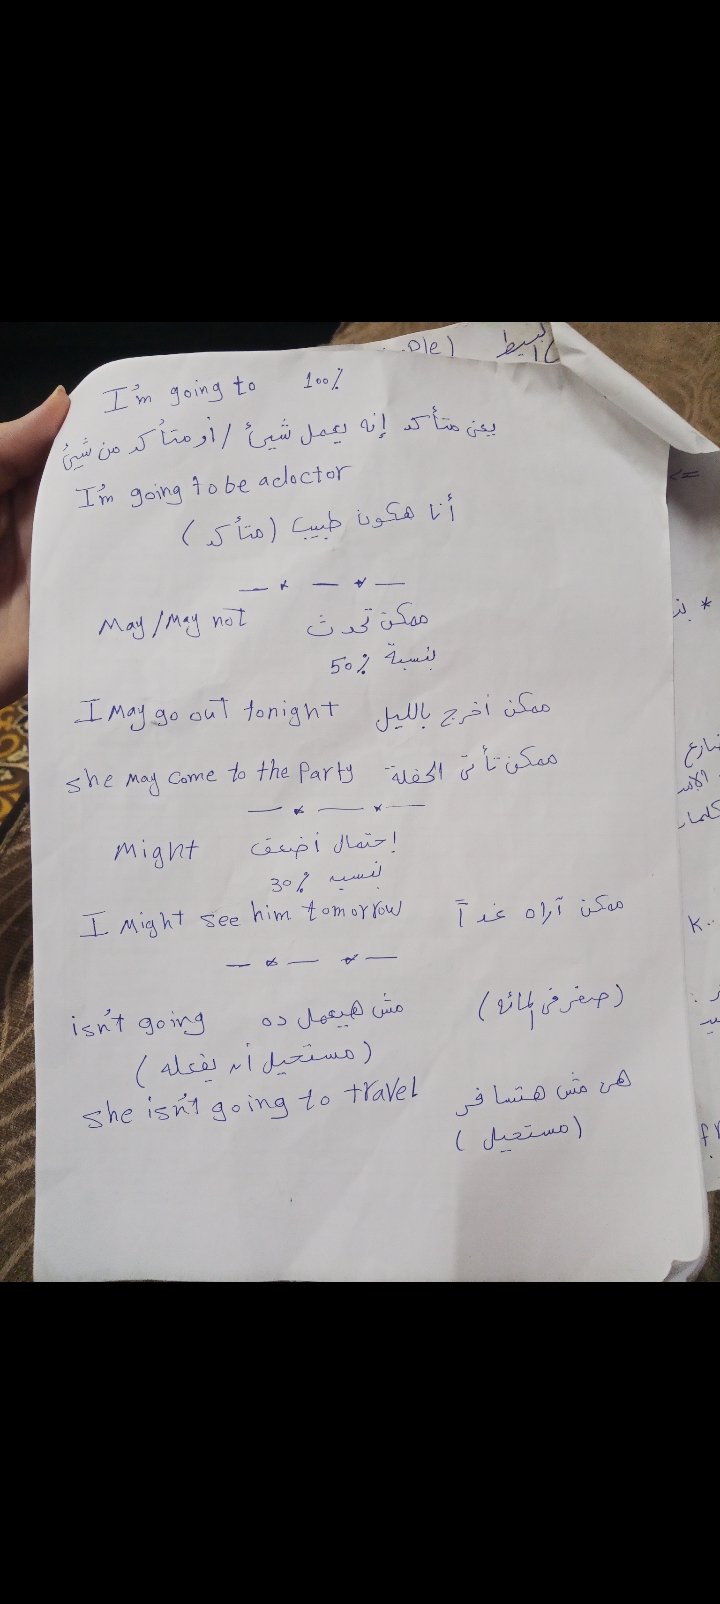 ple)
البسيط
I'm going to 100%
يعنى متأكد إنه يعمل شيئ / أو متأكد من شيئ
I'm going to be a doctor
أنا هكون طبيب (متأكد)
May / May not ممكن تحدث
بنسبة 50%
I May go out tonight ممكن أخرج بالليل
she may come to the Party ممكن تأتى الحفلة
Might إحتمال أضعف
بنسبه 30%
I Might see him tomorrow ممكن آراه غداً
isn't going مش هيعمل ده (صفر فى المائه)
(مستحيل أن يفعله)
she isn't going to travel هى مش هتسافر
(مستحيل)